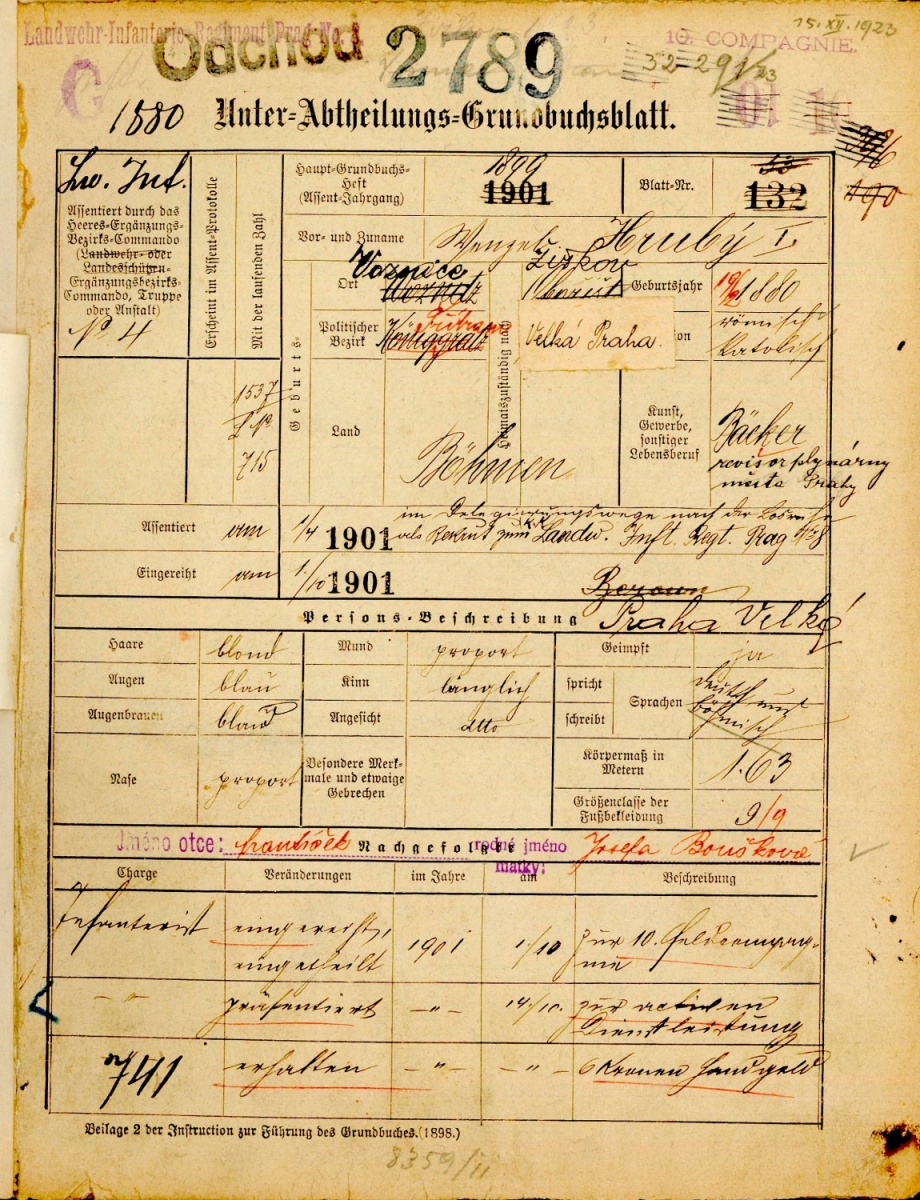 Landwehr-Infanterie Regiment Prag No. 8
Odchod
2789
15. XII. 1923
10. COMPAGNIE.
32-291/23
G
1880 Unter-Abtheilungs-Grundbuchsblatt.
396
190
Lw. Inf.
Assentiert durch das
Heeres-Ergänzungs-
Bezirks-Commando
(Landwehr- oder
Landesschützen-
Ergänzungsbezirks-
Commando, Truppe
oder Anstalt)
No 4
Erscheint im Assent-Protokolle
Mit der laufenden Zahl
1537
L No
715
Haupt-Grundbuchs-
Heft
(Assent-Jahrgang)
1899
1901
Blatt-Nr.
132
Vor- und Zuname
Wenzel Hrubý I.
Geburts-
Ort
Voznice
Woznitz
Politischer
Bezirk
Königgrätz
Land
Böhmen
Heimatszuständig nach
Žižkov
Velká Praha.
Geburtsjahr
1880
römisch
katolisch
Kunst,
Gewerbe,
sonstiger
Lebensberuf
Bäcker
revisor plynárny
města Prahy
Assentiert am 1/4 1901 im Delegierungswege nach der
als Rekrut zum k.k. Landw. Inft. Regt. Prag No 8
Eingereiht am 1/10 1901 Beroun
Persons-Beschreibung Praha Velká
Haare blond Mund proport Geimpft ja
Augen blau Kinn länglich
Augenbrauen blond Angesicht dtto
spricht
schreibt
Sprachen
deutsch und
böhmisch
Nase proport
Besondere Merk-
male und etwaige
Gebrechen
Körpermaß in
Metern
1.63
Größenclasse der
Fußbekleidung
9/9
Jméno otce: František Nachgefolgte rodné jméno
matky: Josefa Boušková
Charge Veränderungen im Jahre am Beschreibung
Infanterist eingereiht, 1901 1/10 zur 10. Feldcompag-
eingetheilt nie
-"- präsentiert -"- 14/10. zur activen
Dienstleistung
741 erhalten -"- -"- 6 Kronen Handgeld
Beilage 2 der Instruction zur Führung des Grundbuches. (1898.)
8359/II